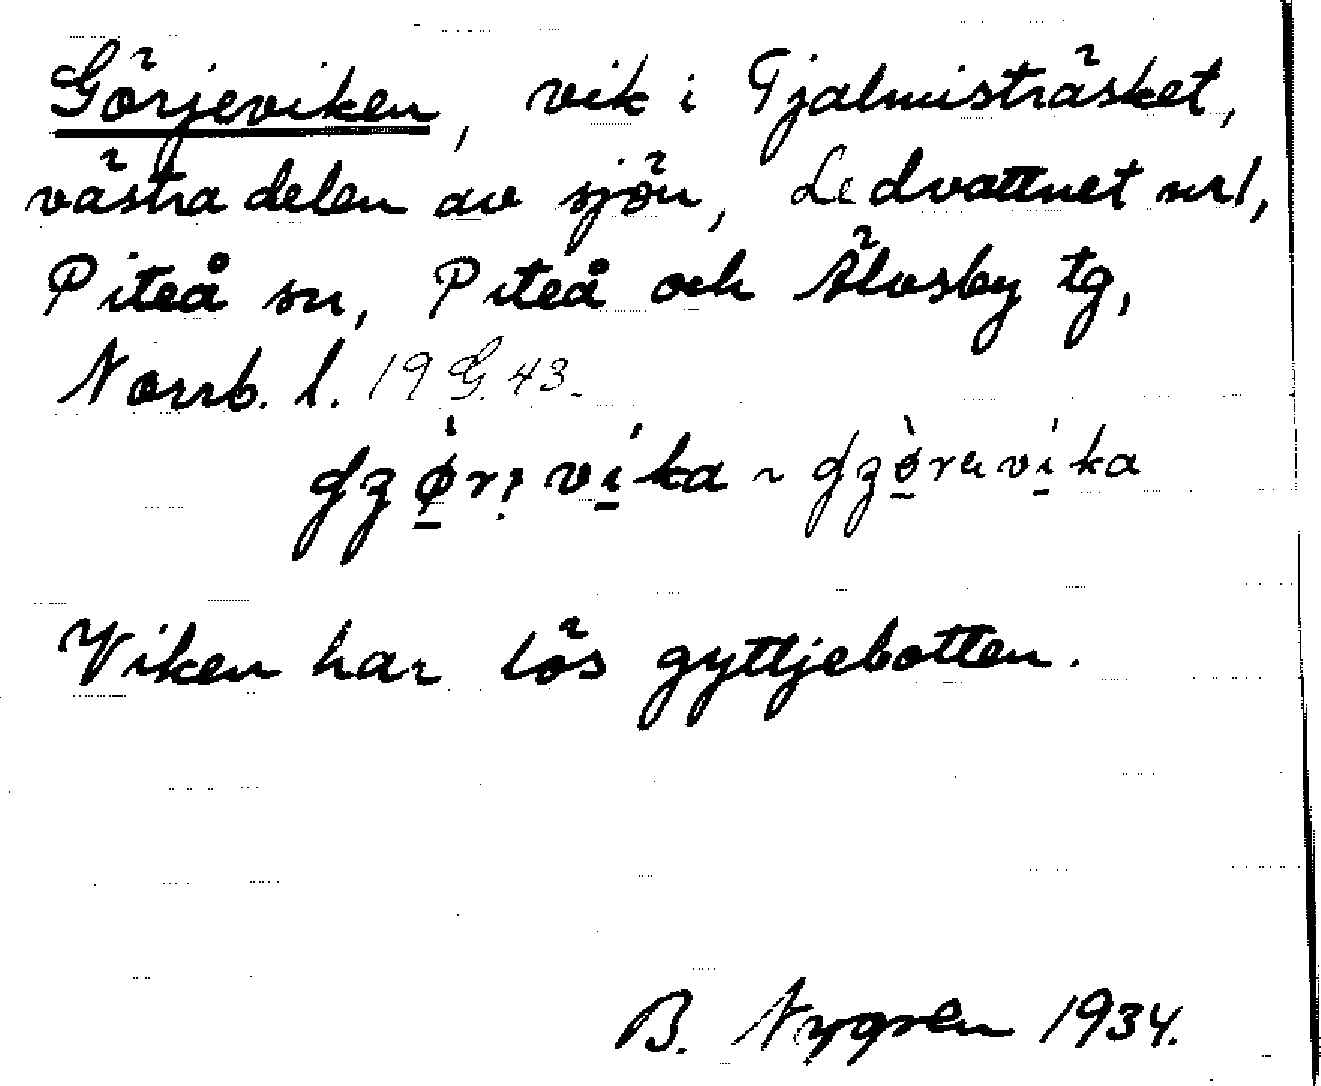 Görjeviken, vik i Tjalmisträsket,
västra delen av sjön, Ledvattnet nr 1,
Piteå sn, Piteå och Älvsby tg,
Norrb. l. 19 G. 43.
Viken har lös gyttjebotten.
B. Nygren 1934.